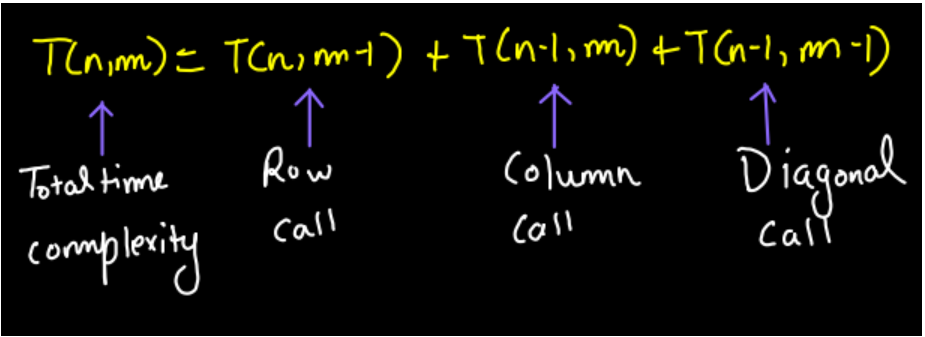 T(n,m) = T(n, m-1) + T(n-1, m) + T(n-1, m-1)
Total time complexity
Row call
Column call
Diagonal call